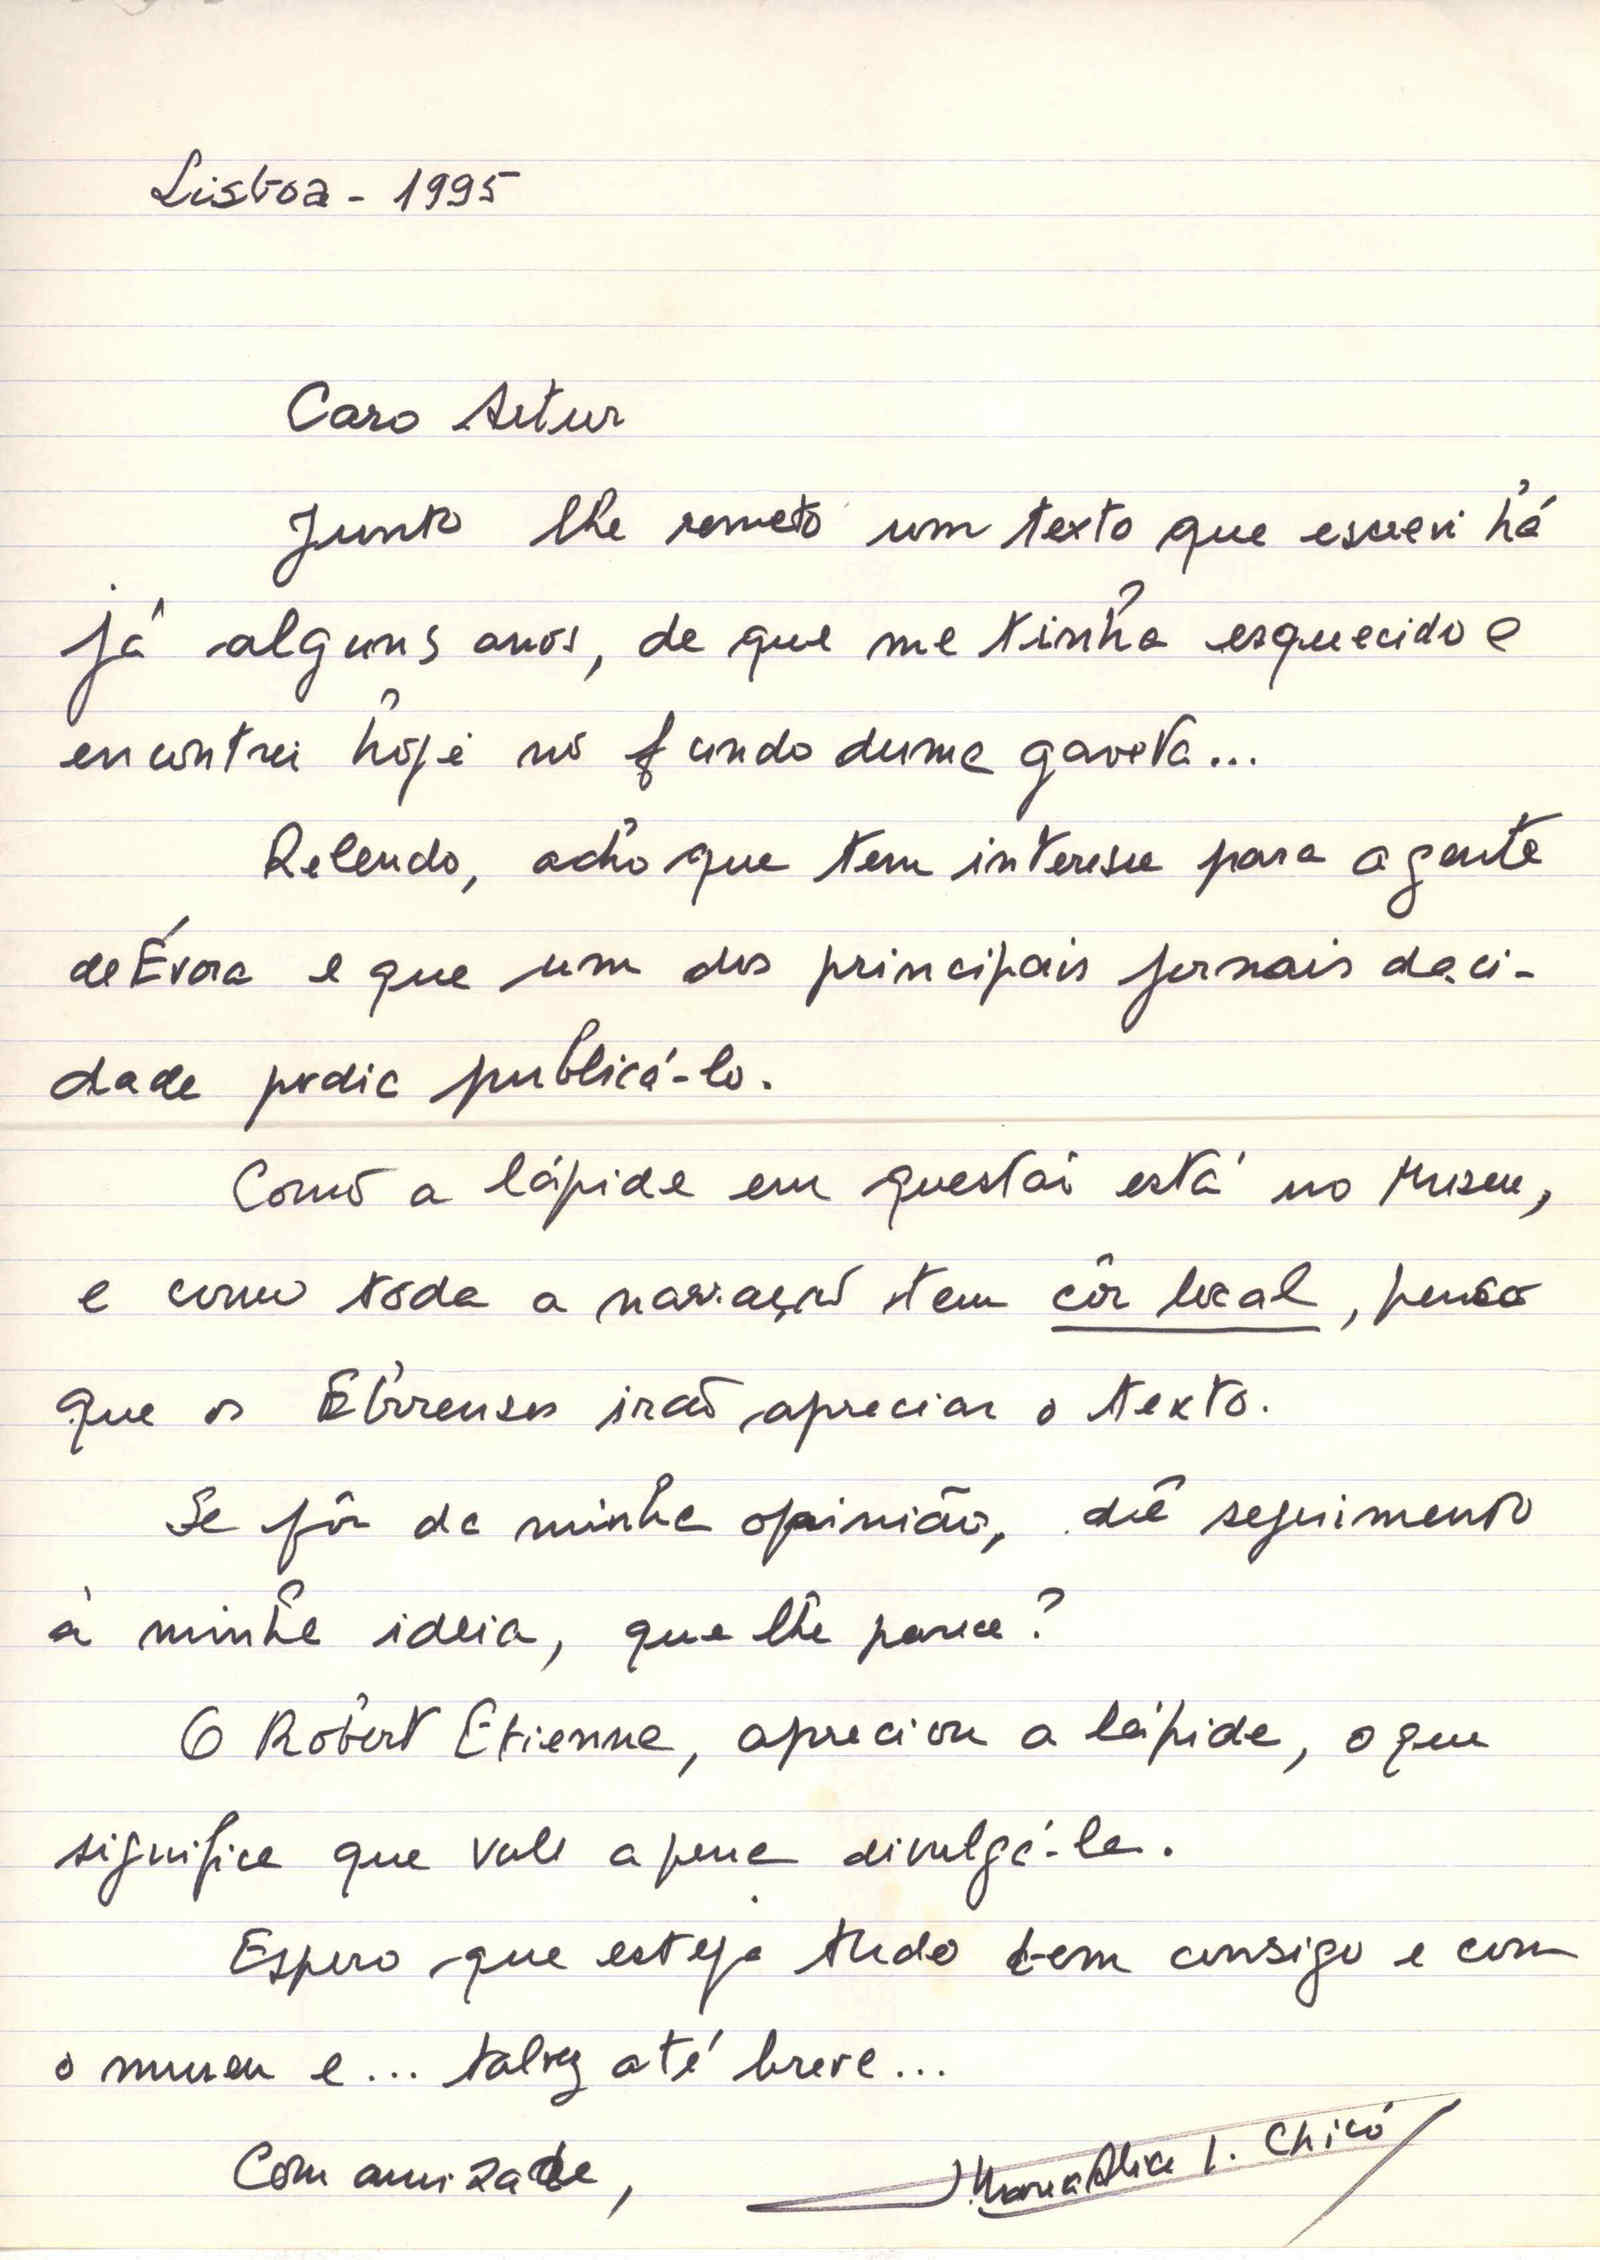 Lisboa - 1995
Caro Artur
Junto lhe remeto um texto que escrevi há
já alguns anos, de que me tinha esquecido e
encontrei hoje no fundo duma gaveta...
Relendo, acho que tem interesse para a gente
de Évora e que um dos principais jornais da ci-
dade podia publicá-lo.
Como a lápide em questão está no Museu,
e como toda a narração tem côr local, penso
que os Eborenses irão apreciar o texto.
Se fôr da minha opinião, dê seguimento
à minha ideia, que lhe parece?
O Robert Etienne, apreciou a lápide, o que
significa que vale a pena divulgá-la.
Espero que esteja tudo bem consigo e com
o museu e... talvez até breve...
Com amizade,
Maria Alice L. Chicó